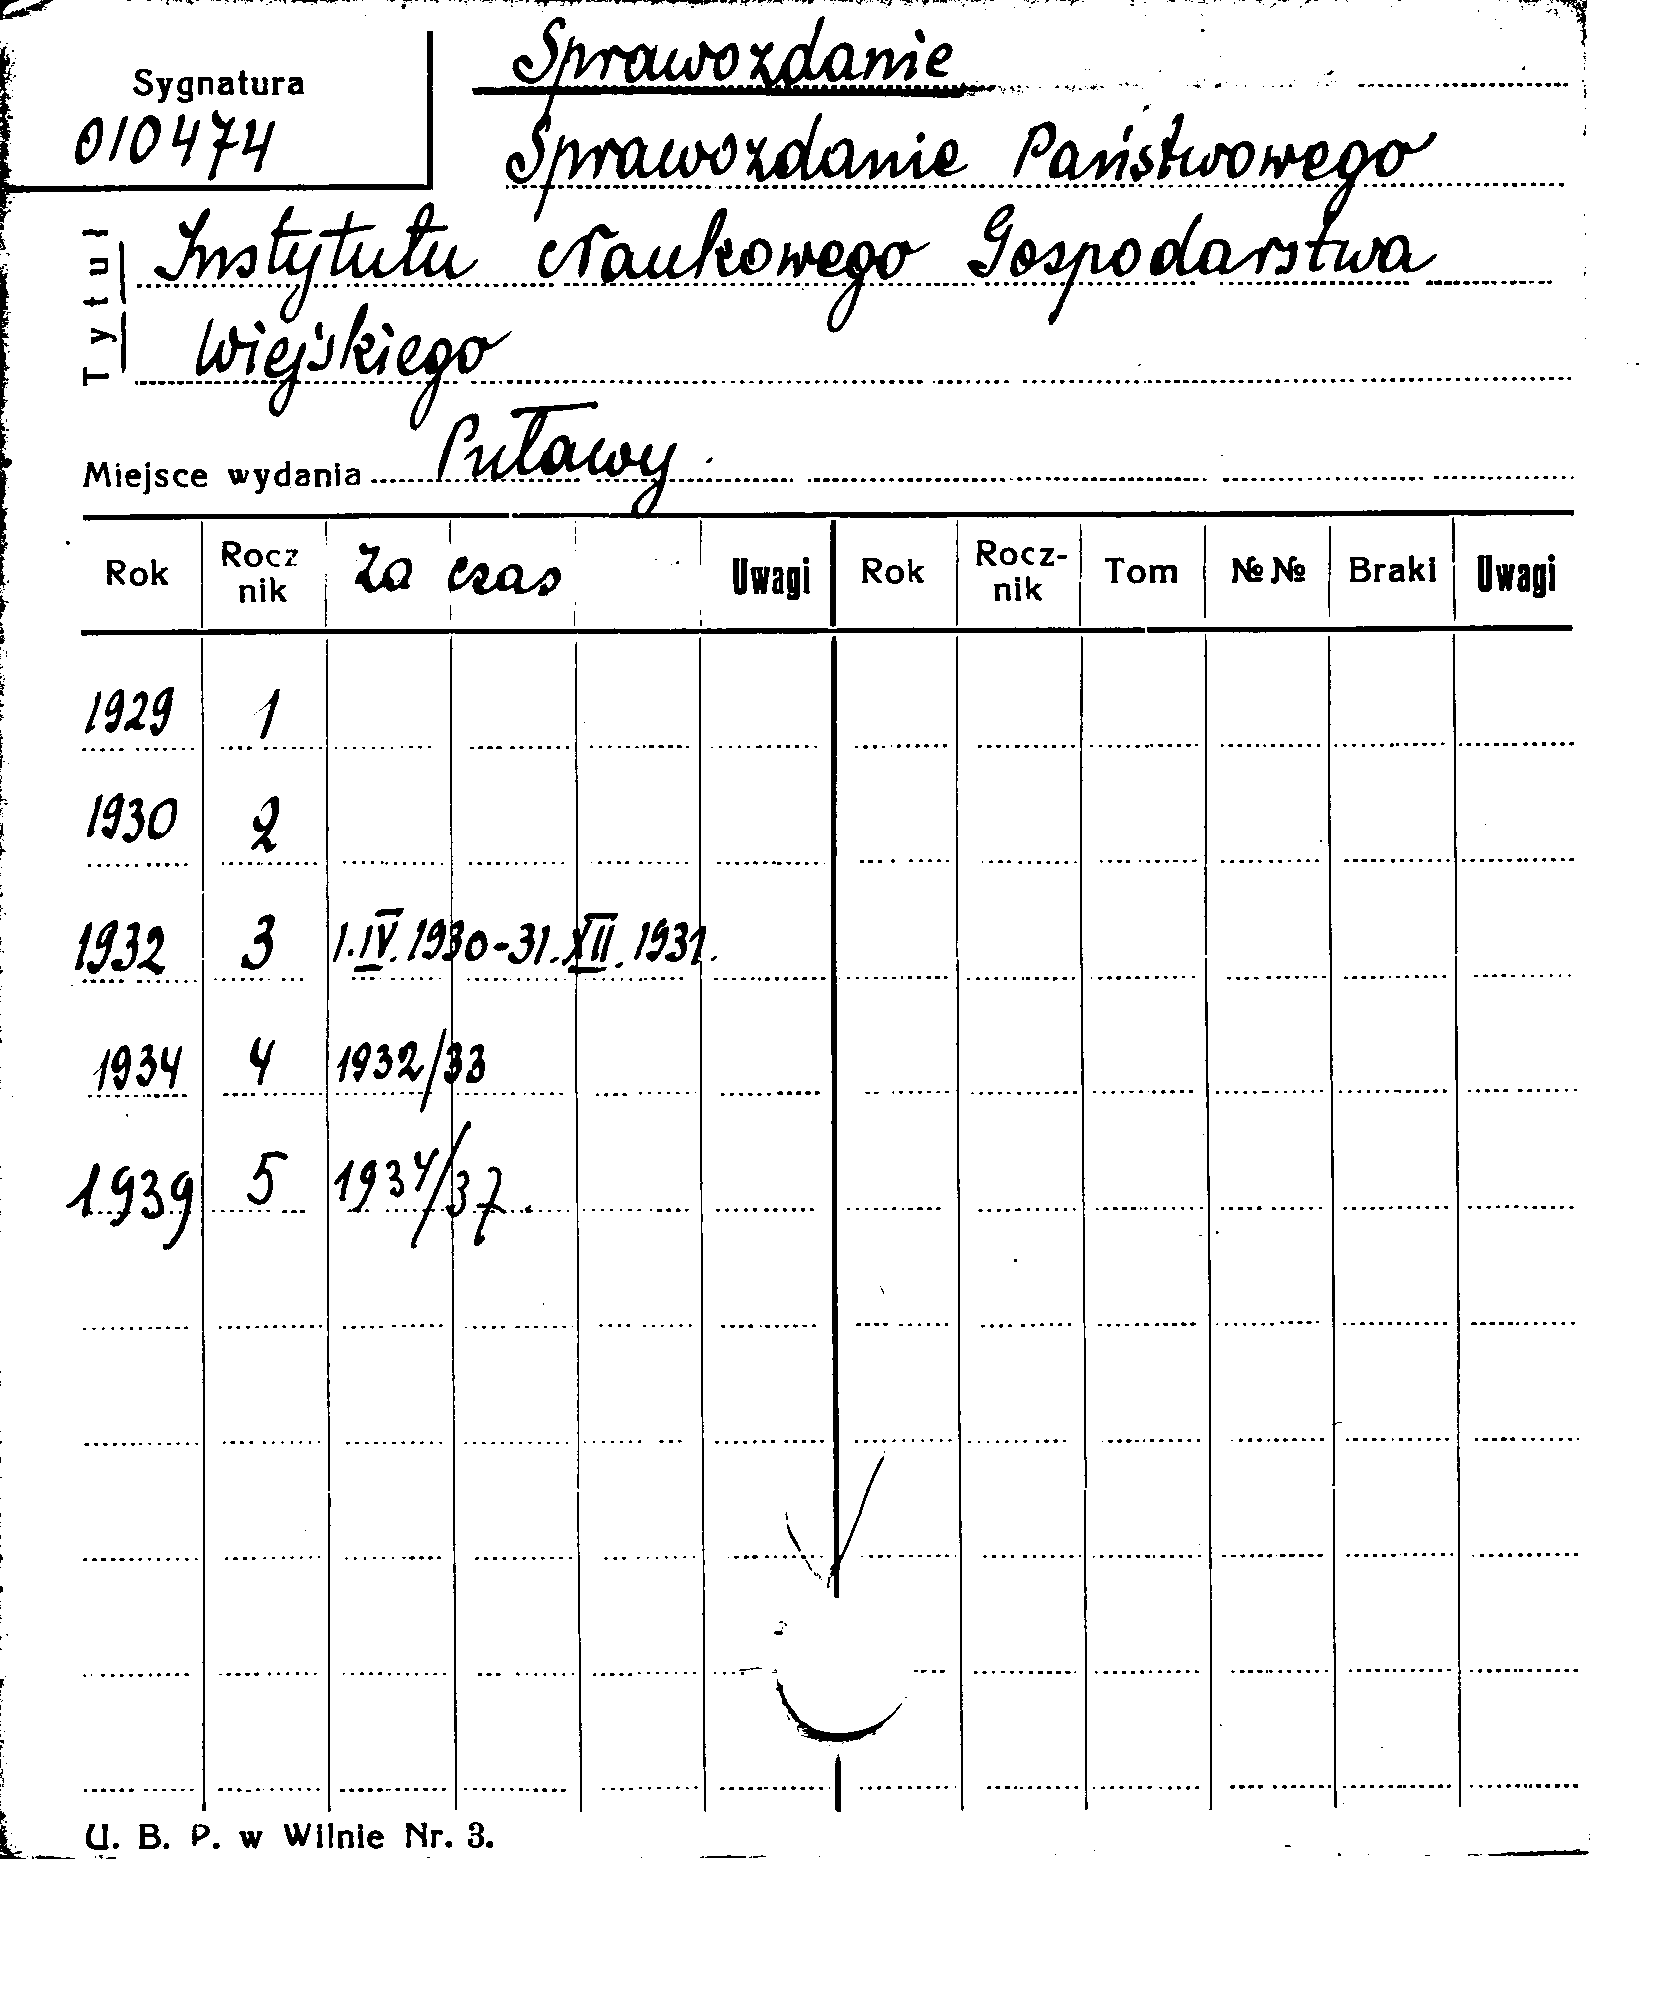 Sprawozdanie
Sygnatura
010474
Sprawozdanie Państwowego
Tytuł
Instytutu Naukowego Gospodarstwa
Wiejskiego
Miejsce wydania Puławy
Rok Rocz nik Za czas Uwagi Rok Rocz- nik Tom №№ Braki Uwagi
1929 1
1930 2
1932 3 1.IV.1930-31.XII.1931.
1934 4 1932/33
1939 5 1934/37.
U. B. P. w Wilnie Nr. 3.